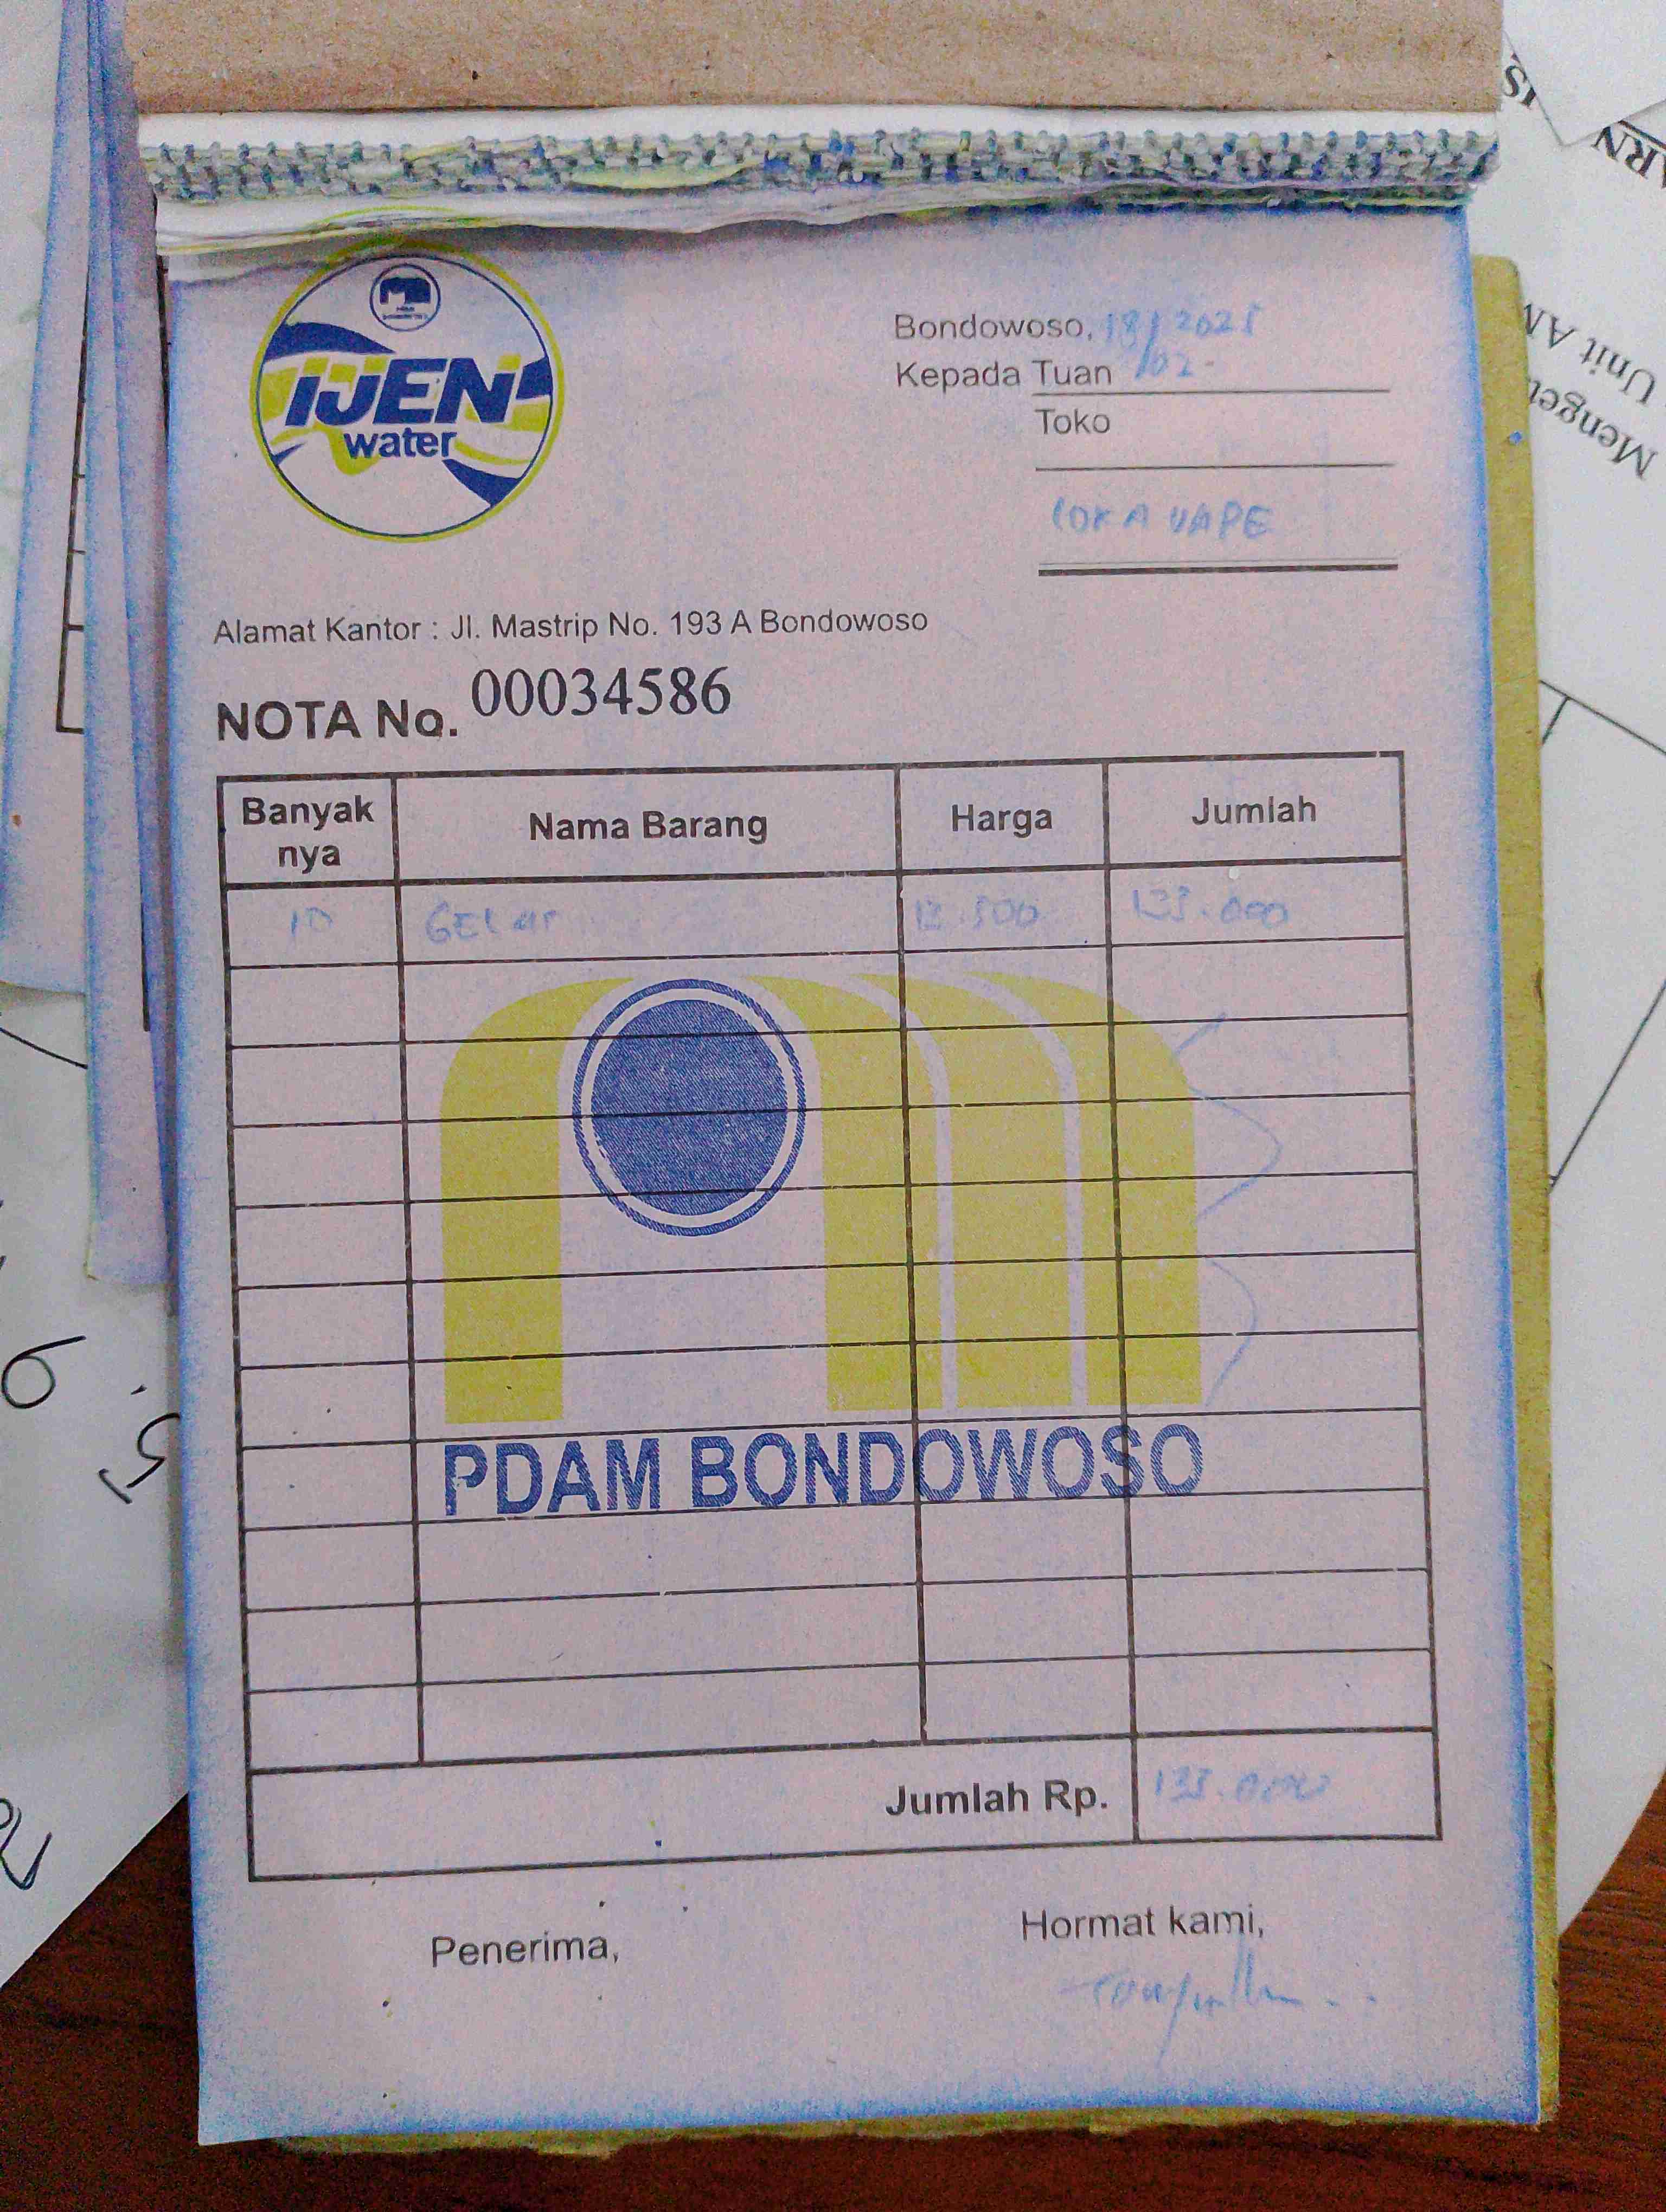 IJEN
water
Bondowoso, 18/02-2025
Kepada Tuan
Toko
LOKA VAPE
Alamat Kantor : Jl. Mastrip No. 193 A Bondowoso
NOTA No. 00034586
Banyak nya Nama Barang Harga Jumlah
10 GELAS 13.500 135.000
PDAM BONDOWOSO
Jumlah Rp. 135.000
Penerima,
Hormat kami,
Unit